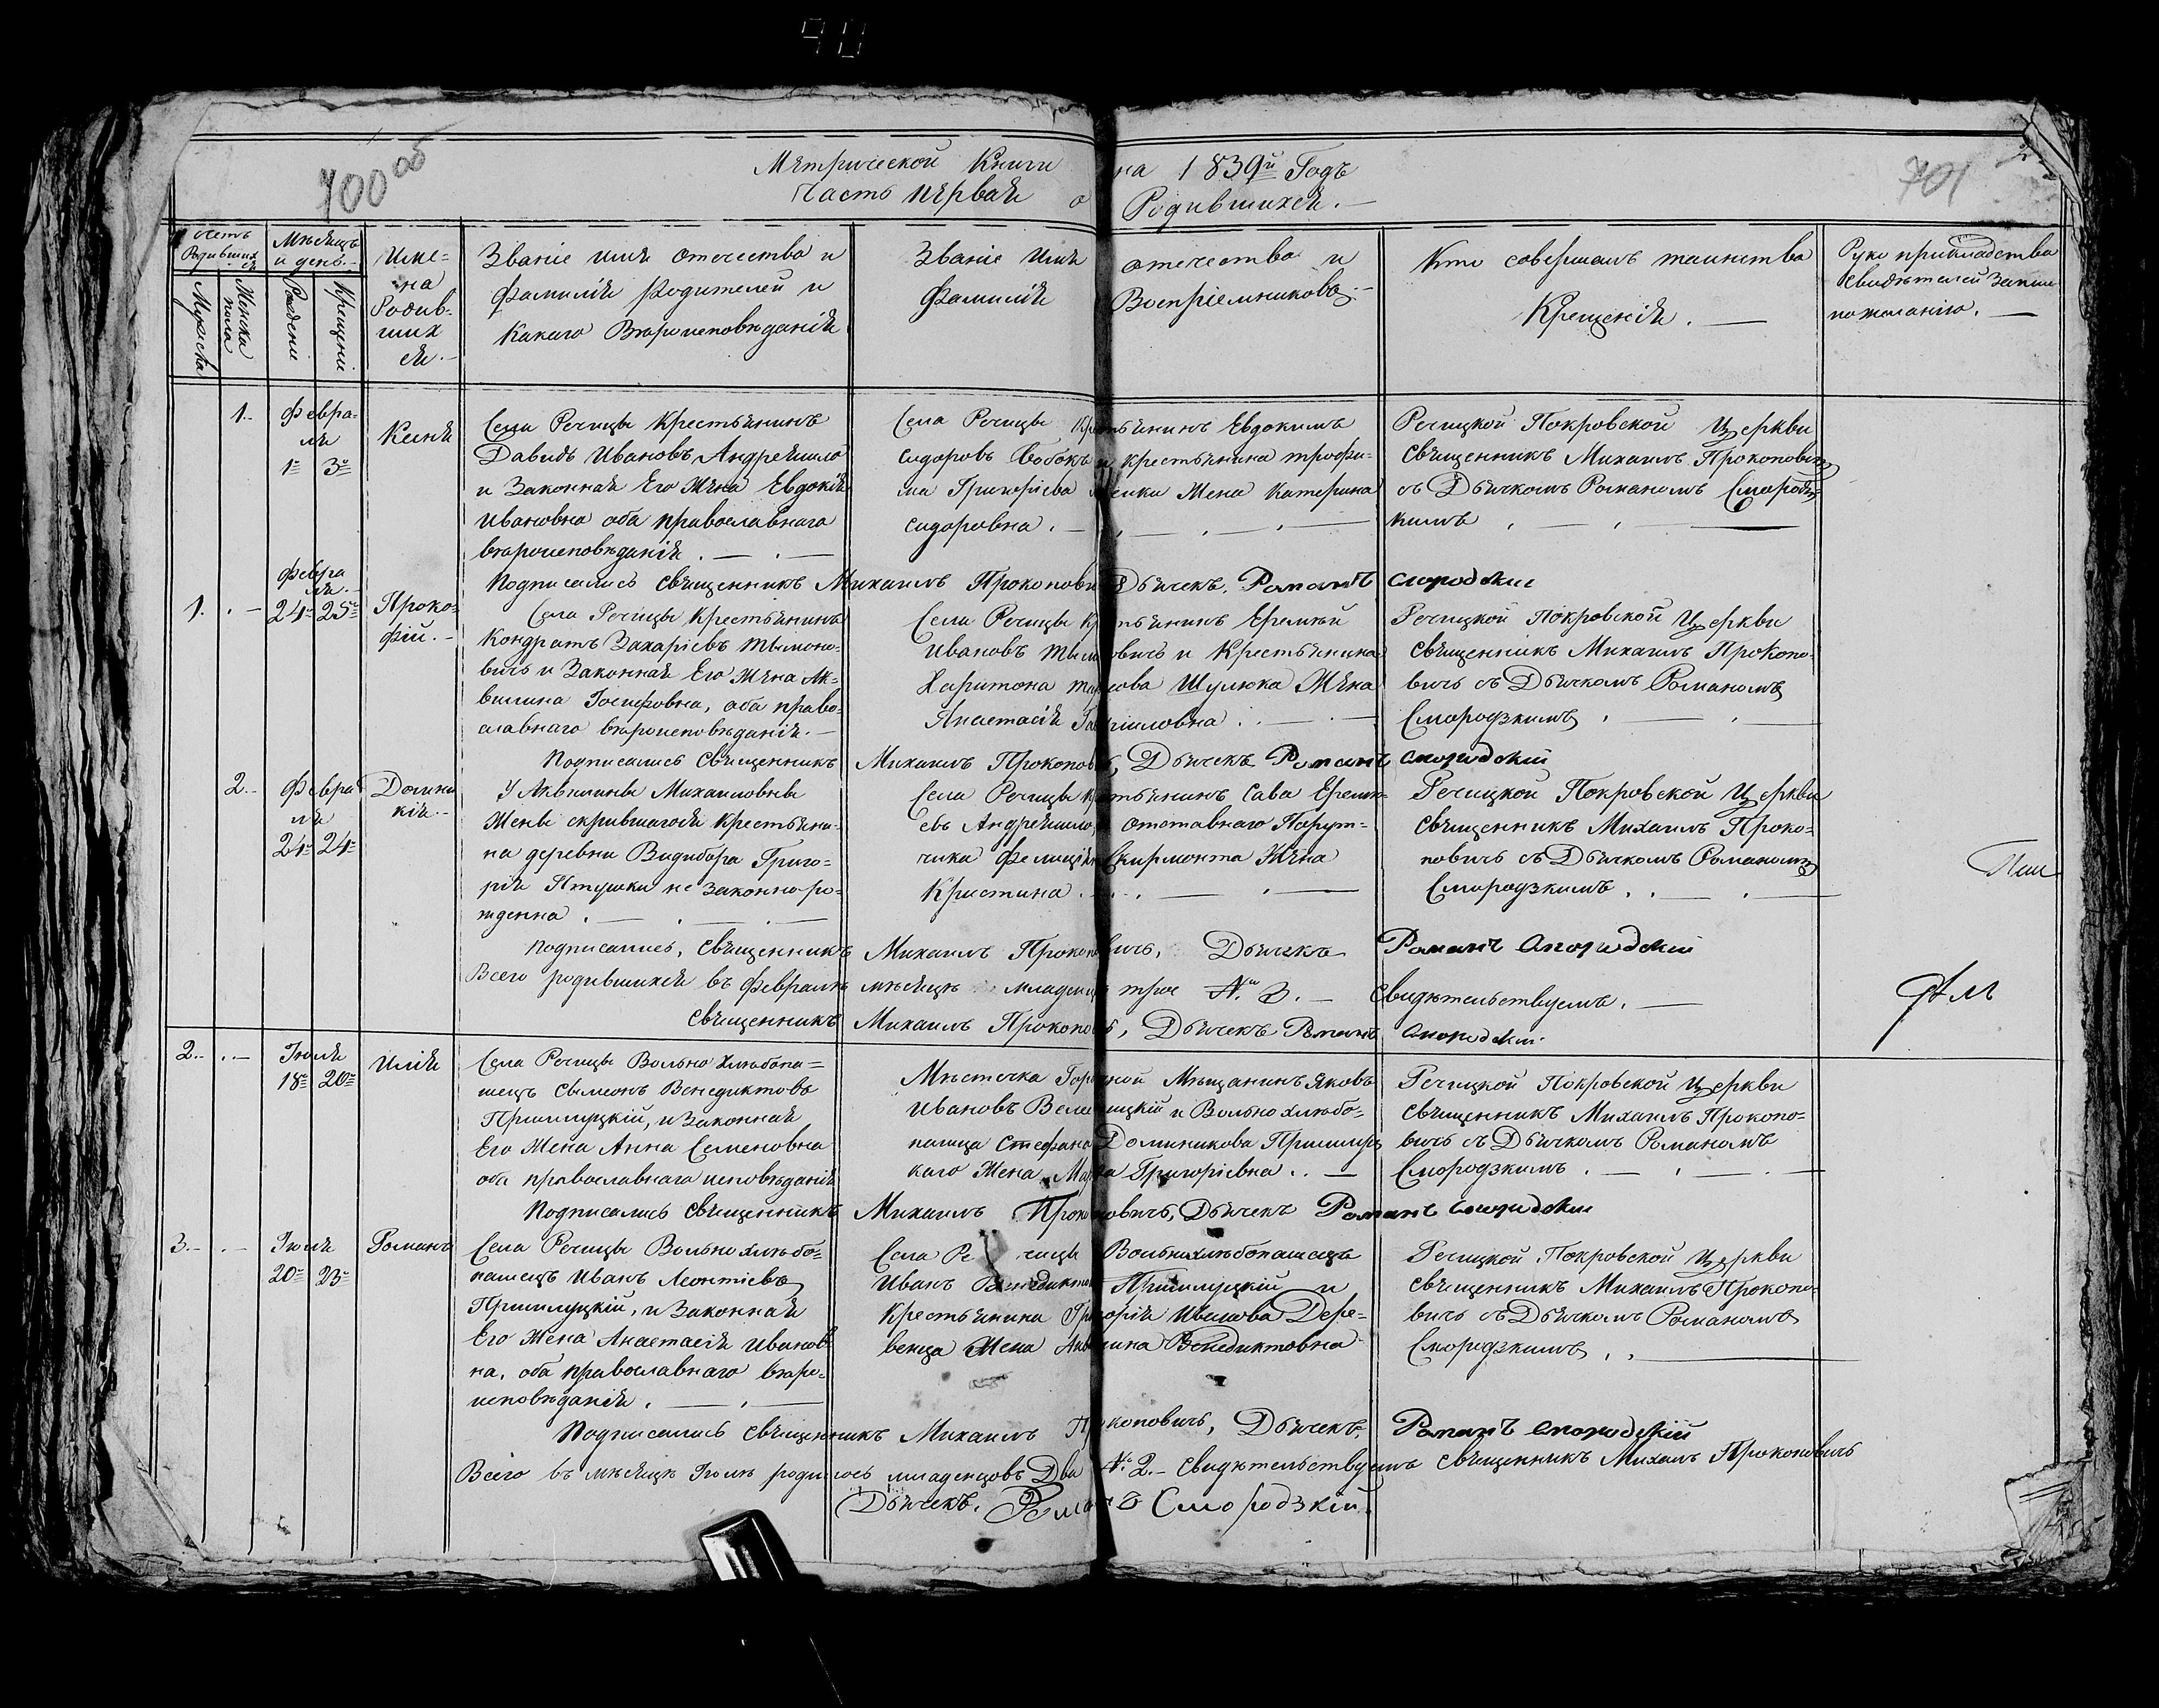 700 об
Метрической Книги на 1839й Годъ
701
Часть первая о Родившихся.
Счетъ Родившихся
Мужеска
Женска пола
Мѣсяцъ и день.
Рождения
Крещения
Имена Родившихся.
Званіе имя отечество и
фамилія Родителей и
Какаго Вѣроисповѣданія
Званіе Имя отечество и
Фамилія Воспріемниковъ.
Кто совершалъ таинство
Крещенія.
Руко прикладства
свидѣтелей записи
по желанію.
1.
Февра-
ля
1 3
Ксенія
Села Речицы Крестьянинъ
Давидъ Ивановъ Андреюшко
и Законная Его Жена Евдокія
Ивановна оба православнаго
вѣроисповѣданія.
Села Речицы Крестьянинъ Евдокимъ
Сидоровъ Бобокъ и Крестьянина Трофи-
ма Григорьева Жена Катерина
Сидоровна.
Речицкой Покровской Церкви
Священникъ Михаилъ Прокоповичъ
съ Дьячкомъ Романомъ Смородз-
кимъ
Подписались Священникъ Михаилъ Прокоповичъ Дьячекъ. Романъ Смородзкій
1.
Февра
ля.
24 25
Проко-
фій.
Села Речицы Крестьянинъ
Кондратъ Захаріевъ Тымоно-
вичъ и Законная Его Жена Ак-
вилина Іосифовна, оба право-
славнаго вѣроисповѣданія.
Села Речицы Крестьянинъ Еремій
Ивановъ и Крестьянина
Харитона Шулюка Жена
Анастасія Гавріиловна.
Речицкой Покровской Церкви
Священникъ Михаилъ Прокопо-
вичъ съ Дьячкомъ Романомъ
Смородзкимъ
Подписались Священникъ Михаилъ Прокоповичъ, Дьячекъ Романъ Смородзкій
2.
Февра
ля
24 24
Домини
кія.
У Аквилины Михаиловны
Жены скрившагося Крестьяни-
на деревни Видибора Григо-
рія Птушки не Законноро-
жденна.
Села Речицы Крестьянинъ Сава Ереми-
евъ Андреюшко, отставнаго Порут-
чика Фелиціяна Скирмонта Жена
Кристина.
Речицкой Покровской Церкви
Священникъ Михаилъ Проко-
повичъ съ Дьячкомъ Романомъ
Смородзкимъ.
Подписались, Священникъ Михаилъ Прокоповичъ, Дьячекъ Романъ Смородзкій
Всего родившихся въ Февралѣ мѣсяцѣ младенцовъ трое №. 3. Свидѣтельствуемъ.
Священникъ Михаилъ Прокоповичъ, Дьячекъ Романъ Смородзкій.
2.
Іюля
18 20
Илія
Села Речицы Вольно Хлѣбопа-
шецъ Сымеонъ Венедиктовъ
Пришлуцкій, и Законная
Его Жена Анна Семеновна
оба православнаго исповѣданія
Мѣстечка Мѣщанинъ Яковъ
Ивановъ и Вольно хлѣбо-
пашца Стефана Доминикова Пришлуц
каго Жена Григорьевна.
Речицкой Покровской Церкви
Священникъ Михаилъ Прокопо-
вичъ съ Дьячкомъ Романомъ
Смородзкимъ.
Подписались Священникъ Михаилъ Прокоповичъ, Дьячекъ Романъ Смородзкій
3.
Іюля
20 23
Романъ
Села Речицы Вольно хлѣбо-
пашецъ Иванъ Леонтіевъ
Пришлуцкій, и Законная
Его Жена Анастасія Иванов
на, оба православнаго вѣро-
исповѣданія.
Села Речицы Вольнохлѣбопашецъ
Иванъ Венедиктовъ Пришлуцкій и
Крестьянина Григорія Дере-
венца Жена Аквилина Венедиктовна
Речицкой Покровской Церкви
Священникъ Михаилъ Прокопо-
вичъ съ Дьячкомъ Романомъ
Смородзкимъ
Подписались Священникъ Михаилъ Прокоповичъ, Дьячекъ Романъ Смородзкій
Всего въ мѣсяцѣ Іюлѣ родилось младенцовъ Два №. 2. Свидѣтельствуемъ Священникъ Михаилъ Прокоповичъ
Дьячекъ. Романъ Смородзкій.